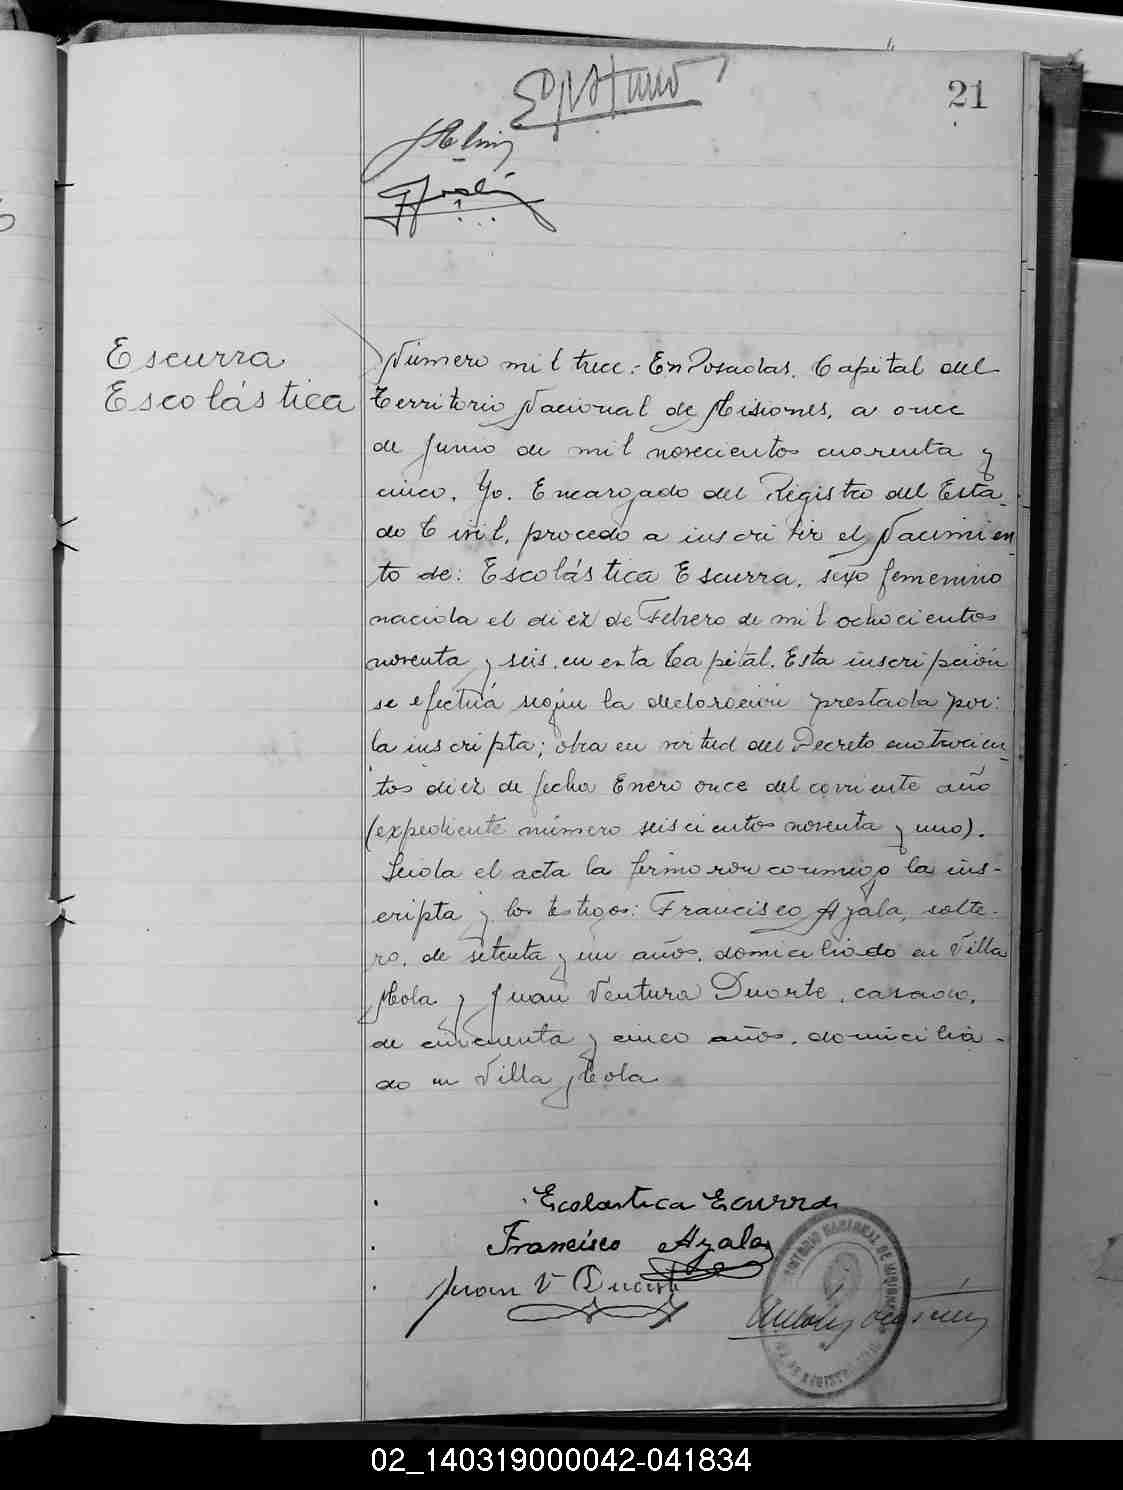 21
Escurra
Escolástica
Número mil trece:- En Posadas, Capital del
Territorio Nacional de Misiones, a once
de Junio de mil novecientos cuarenta y
cinco, Yo, Encargado del Registro del Esta-
do Civil, procedo a inscribir el Nacimien-
to de: Escolástica Escurra, sexo femenino
nacida el diez de Febrero de mil ochocientos
noventa y seis, en esta Capital. Esta inscripción
se efectúa según la declaración prestada por:
la inscripta; obra en virtud del Decreto cuatrocien-
tos diez de fecha Enero once del corriente año
(expediente número seiscientos noventa y uno).
Leida el acta la firmaron conmigo la ins-
cripta y los testigos: Francisco Ayala, solte-
ro, de setenta y un años, domiciliado en Villa
Mola y Juan Ventura Duarte, casado,
de cincuenta y cinco años, domicilia-
do en Villa Mola
Ecolastica Ecurra
Francisco Ayala
Juan V Duarte
TERRITORIO NACIONAL DE MISIONES
02_140319000042-041834